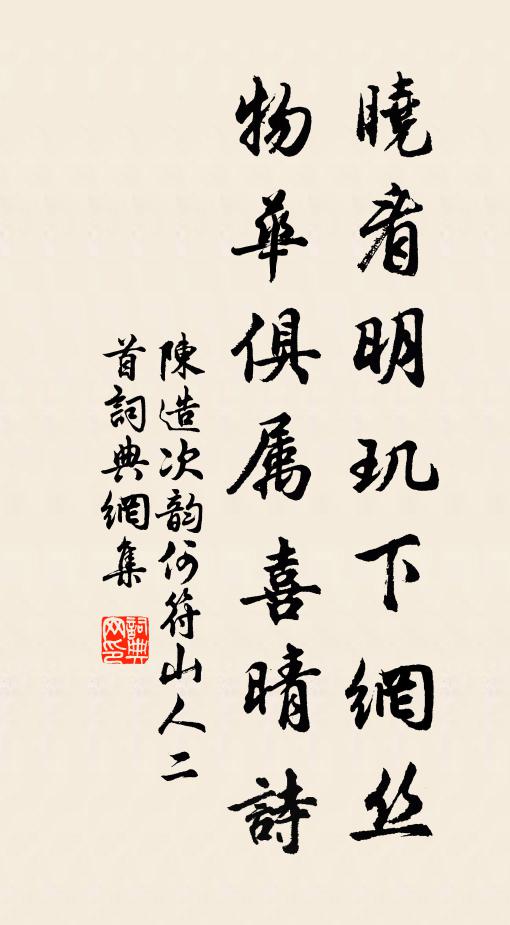 曉看明玑下網丝
物華俱属喜晴詩
陳造次韵何符山人二
首詞典網集
詞典網印